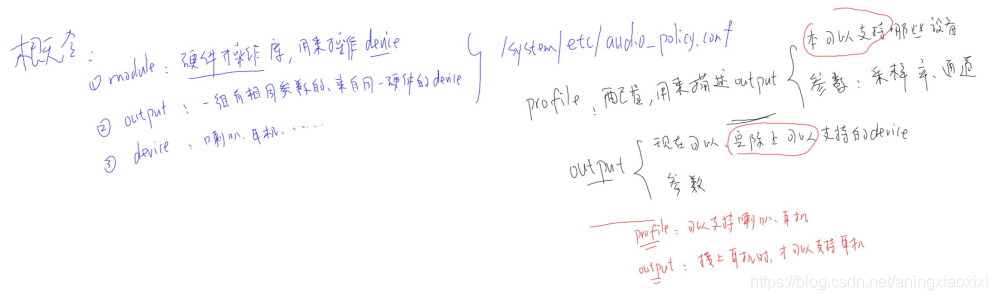 概念：
① module：硬件操作库，用来操作device
② output：一组有相同参数的、来自同一硬件的device
③ device：喇叭、耳机、……
/system/etc/audio_policy.conf
profile：配置，用来描述output
本可以支持哪些设备
参数：采样率、通道
output
现在可以、实际上可以支持的device
参数
profile：可以支持喇叭、耳机
output：接上耳机时，才可以支持耳机
https://blog.csdn.net/aningxiaoxixi